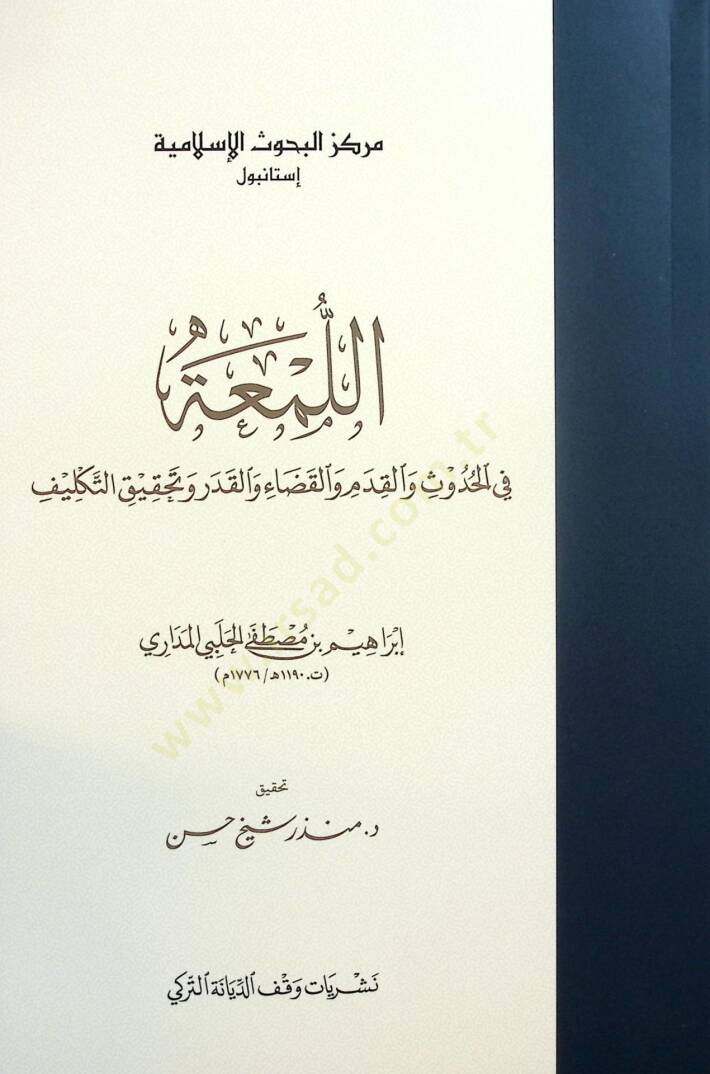 مركز البحوث الإسلامية
إستانبول
اللُّمْعَةُ
فِي الْحُدُوْثِ وَالْقِدَمِ وَالْقَضَاءِ وَالْقَدَرِ وَتَحْقِيْقِ التَّكْلِيْفِ
إِبْرَاهِيْم بن مُصْطَفَى الحَلَبِي المَدَارِي
(ت. ١١٩٠هـ/١٧٧٦م)
تحقيق
د. منذر شيخ حسن
نَشْرِيَات وَقْف الدِّيَانَة التُّرْكِي
www.irsad.com.tr